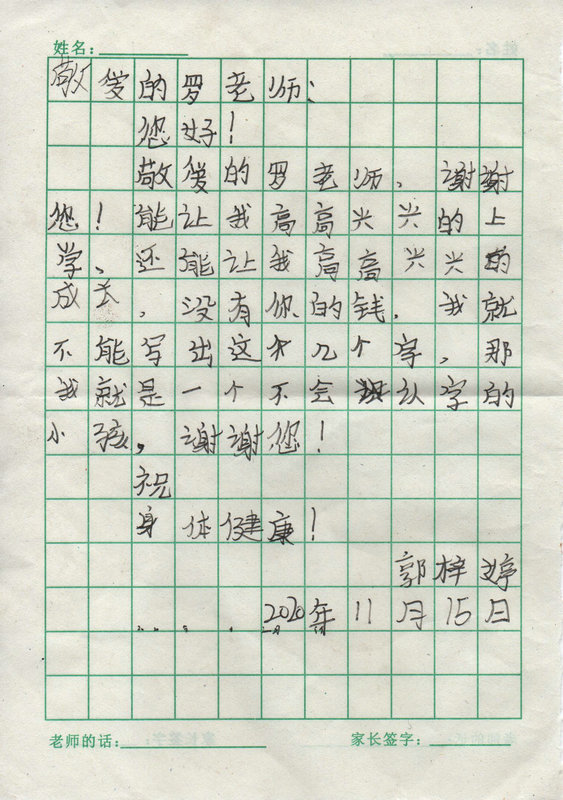 姓名：
敬爱的罗老师：
您好！
敬爱的罗老师，谢谢
您！能让我高高兴兴的上
学，还能让我高高兴兴的
成长，没有你的钱，我就
不能写出这个几个字，那
我就是一个不会认字的
小孩，谢谢您！
祝
身体健康！
郭梓婷
2020年11月15日
老师的话： 家长签字：